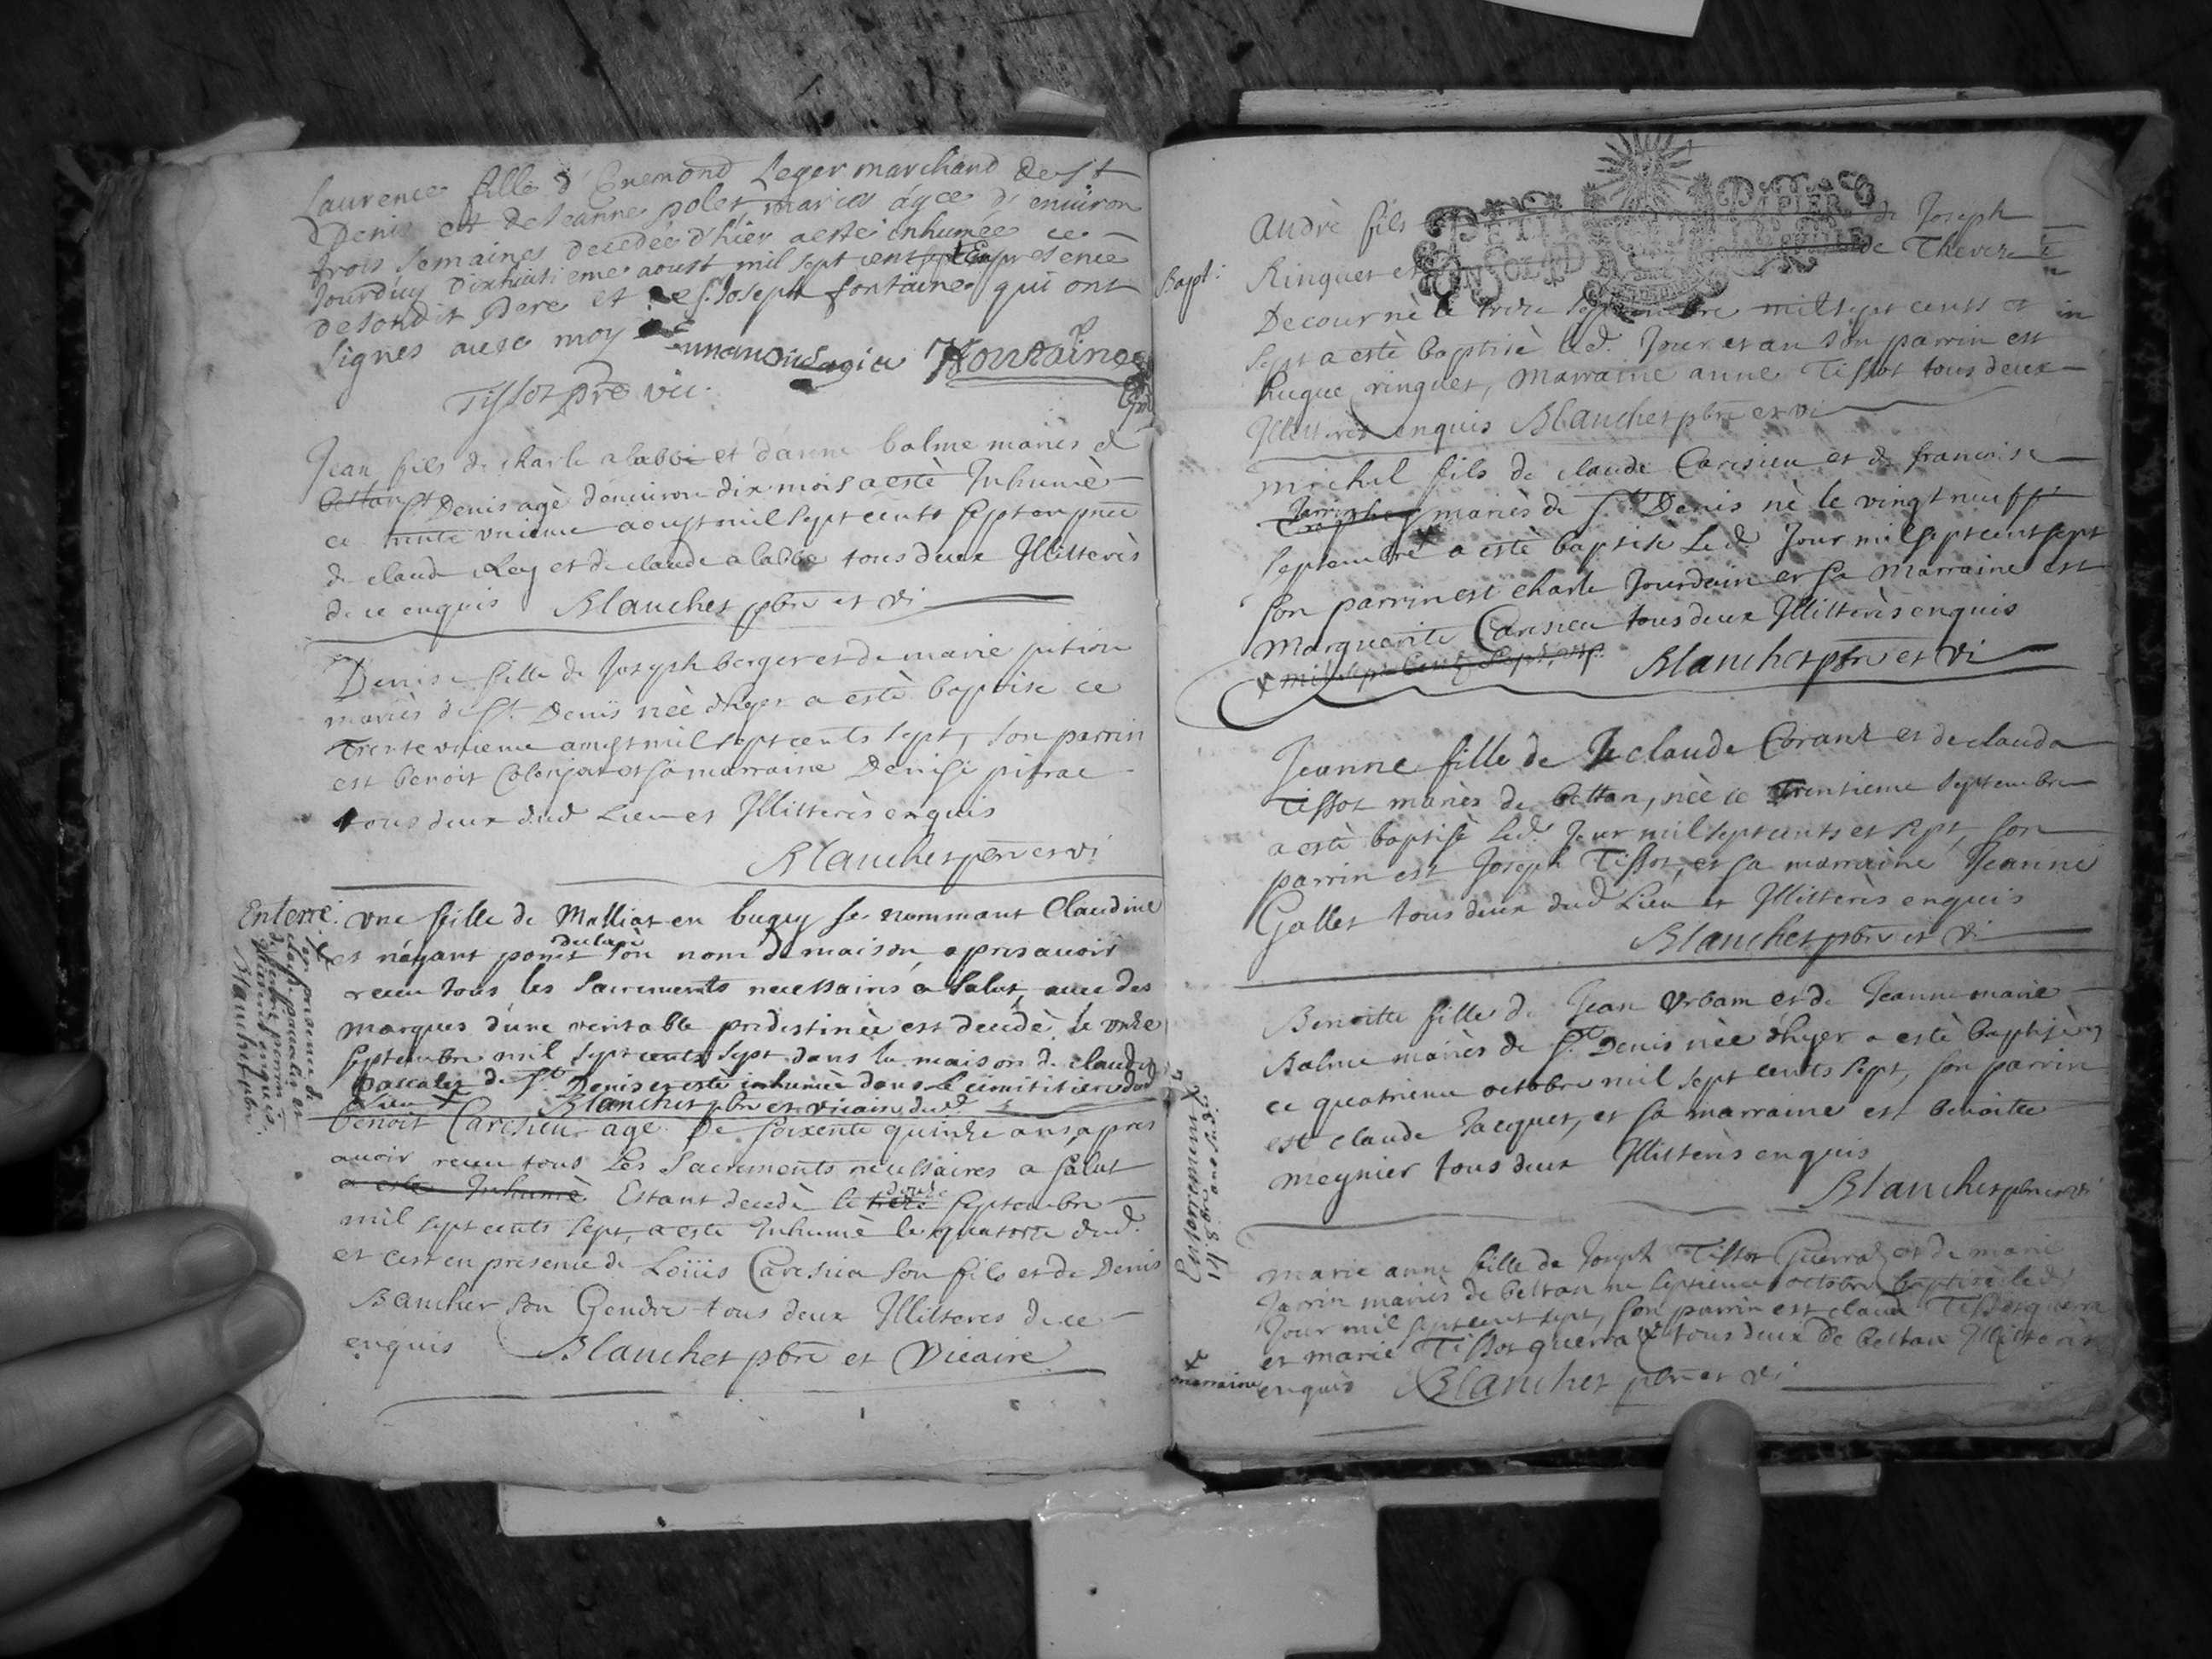 Laurence fille d'Enemond Leger marchand de St
Denis et de Jeanne polet mariés agée d'environ
trois semaines decedée d'hier a esté inhumée ce
Jourduy dixhuitieme aoust mil sept cent sept En presence
de sondit Pere et de s. Joseph fontaine qui ont
signés avec moy
Fontaine
Tissot pre vic.
Jean fils de charle alabbe et d'anne balme mariés d
bettan St Denis agé d'environ dix mois a esté Inhumé
ce trente unieme aoust mil sept cents sept en pnce
de claude Rey et de claude alabbe tous deux Illitterés
de ce enquis Blanchet pbre et vi
Denise fille de Joseph berger et de marie pition
mariés de St. Denis née d'hyer a esté baptisé ce
Trente unieme aoust mil sept cents sept, son parrin
est benoit et sa marraine Denise pitrac
tous deux dud Lieu et Illitterés enquis
Blanchet pbre et vi
Enterre. une fille de Malliat en bugey se nommant Claudine
et n'ayant point declaré son nom de maison, apres avoir
receu tous les Sacrements necessaires a Salut, avec des
marques d'une veritable predestinée est decedé le onze
septembre mil sept cents sept dans la maison de claude
pascalet de St. Denis et esté inhumée dans le cimitiere dud
Lieu + Blanchet pbre et vicaire dud.
+ en presence de
claude pascalet et
de benoit
Illitterés enquis
Blanchet pbre
benoit Caresieu agé De soixente quinze ans apres
avoir receu tous Les Sacrements necessaires a Salut
a esté Inhumé Estant decedé le treze douze septembre
mil sept cents sept, a esté Inhumé le quatorze dud.
et c'est en presence de Loüis Caresieu son fils et de Denis
Bancher son Gendre tous deux Illitteres de ce
enquis Blanchet pbre et Vicaire
PAPIER
André fils de Joseph
Bapt: Ringuet et de Thereze
Decour né le treze septembre mil sept cents et
sept a esté baptisé led. Jour et an son parrin est
hugue ringuet, Marraine anne Tissot tous deux
Illitterés enquis Blanchet pbre et vi
michel fils de claude Caresieu et de francoise
Jarrin mariés de St. Denis né le vingt neuff
septembre + a esté baptisé Led. Jour mil sept cent sept
son parrin est charle Jourdain et sa Marraine est
Marguerite Caresieu tous deux Illitterés enquis
+ mil sept cents sept Blanchet pbre et vi
Jeanne fille de claude Corant et de clauda
Tissot mariés de bettan, née ce Trentieme septembre
a esté baptisé led. Jour mil sept cents et sept, son
parrin est Joseph Tissot, et sa marraine Jeanne
Gallet tous deux dud Lieu et Illitterés enquis
Blanchet pbre et vi
Benoitte fille de Jean Urbam et de Jeanne marie
Balme mariés de St. Denis née d'hyer a esté baptisé
ce quatrieme octobre mil sept cents sept, son parrin
est claude Jacquet, et sa marraine est benoitte
meynier tous deux Illitterés enquis
Blanchet pbre et vi
marie anne fille de Joseph Tissot Guerraz et de marie
Jarrin mariés de bettan né septieme octobre baptisé led.
Jour mil sept cent sept, son parrin est claude Tissot guerra
et marie Tissot guerraz + tous deux de bettan Illitterés
+ marraine
enquis Blanchet pbre et vi